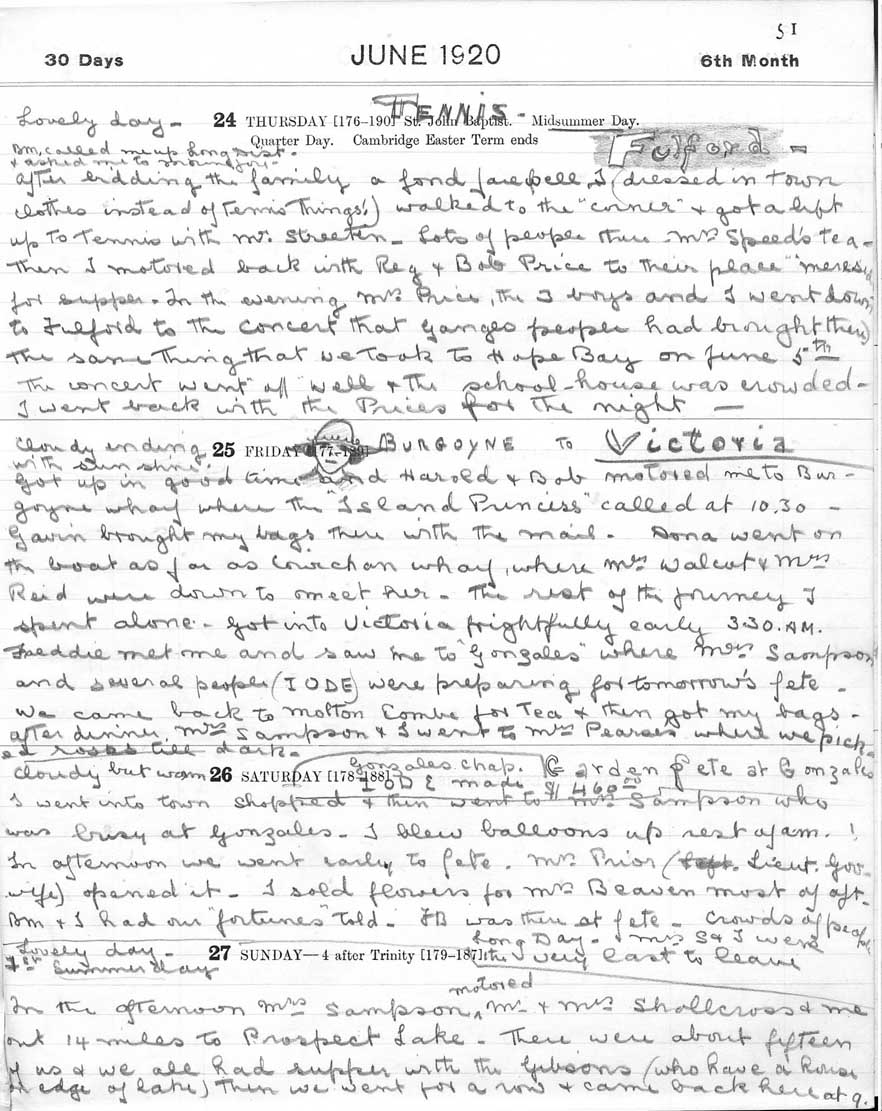 51
30 Days JUNE 1920 6th Month
Lovely day - 24 THURSDAY [176-190] St. John Baptist. - Midsummer Day.
TENNIS -
Quarter Day. Cambridge Easter Term ends
Fulford -
BM, called me up Long Dist.
& asked me to
After bidding the family a fond farewell, I (dressed in town
clothes instead of Tennis Things!) walked to the "corner" & got a lift
up to Tennis with Mr. Streeten - Lots of people there - Mrs Speed's tea -
Then I motored back with Reg & Bob Price to their place
for supper - In the evening Mrs Price, the 3 boys and I went down
to Fulford to the Concert that Ganges people had brought there,
the same Thing that we Took to Hope Bay on June 5th
The concert went off well & the school-house was crowded -
I went back with the Prices for the night -
Cloudy ending 25 FRIDAY [177-189] BURGOYNE TO Victoria
with sunshine.
Got up in good time and Harold & Bob motored me to Bur-
goyne wharf where the "Island Princess" called at 10.30 -
Gavin brought my bags there with the mail - Dona went on
the boat as far as Cowichan wharf, where Mrs Walcot & Mrs
Reid were down to meet her - The rest of the journey I
spent alone - Got into Victoria frightfully early 3.30. AM.
Freddie met me and saw me to "Gonzales" where Mrs Sampson
and several people (IODE) were preparing for tomorrow's fete -
We came back to Molton Combe for Tea & then got my bags -
After dinner, Mrs Sampson & I went to Mrs Pearses where we pick-
ed roses till dark -
Gonzales Chap.
Cloudy but warm 26 SATURDAY [178-188] Garden fete at Gonzales
IODE made $1460.00
I went into town shopped & then went to Mrs Sampson who
was busy at Gonzales - I blew balloons up rest of am. !
In afternoon we went early to fete. Mrs Prior (Lieut. Gov.
wife) opened it - I sold flowers for Mrs Beaven most of aft.
BM & I had our "fortunes" told - FB was there at fete - Crowds of people
Long Day - & Mrs S & I were
Lovely day - 27 SUNDAY-4 after Trinity [179-187] the very last to leave
1st Summer day
motored
In the afternoon Mrs Sampson, Mr & Mrs Shallcross & me
out 14 miles to Prospect Lake - There were about fifteen
of us & we all had supper with the Gibsons (who have a house
on edge of lake) Then we went for a row & came back here at 9.